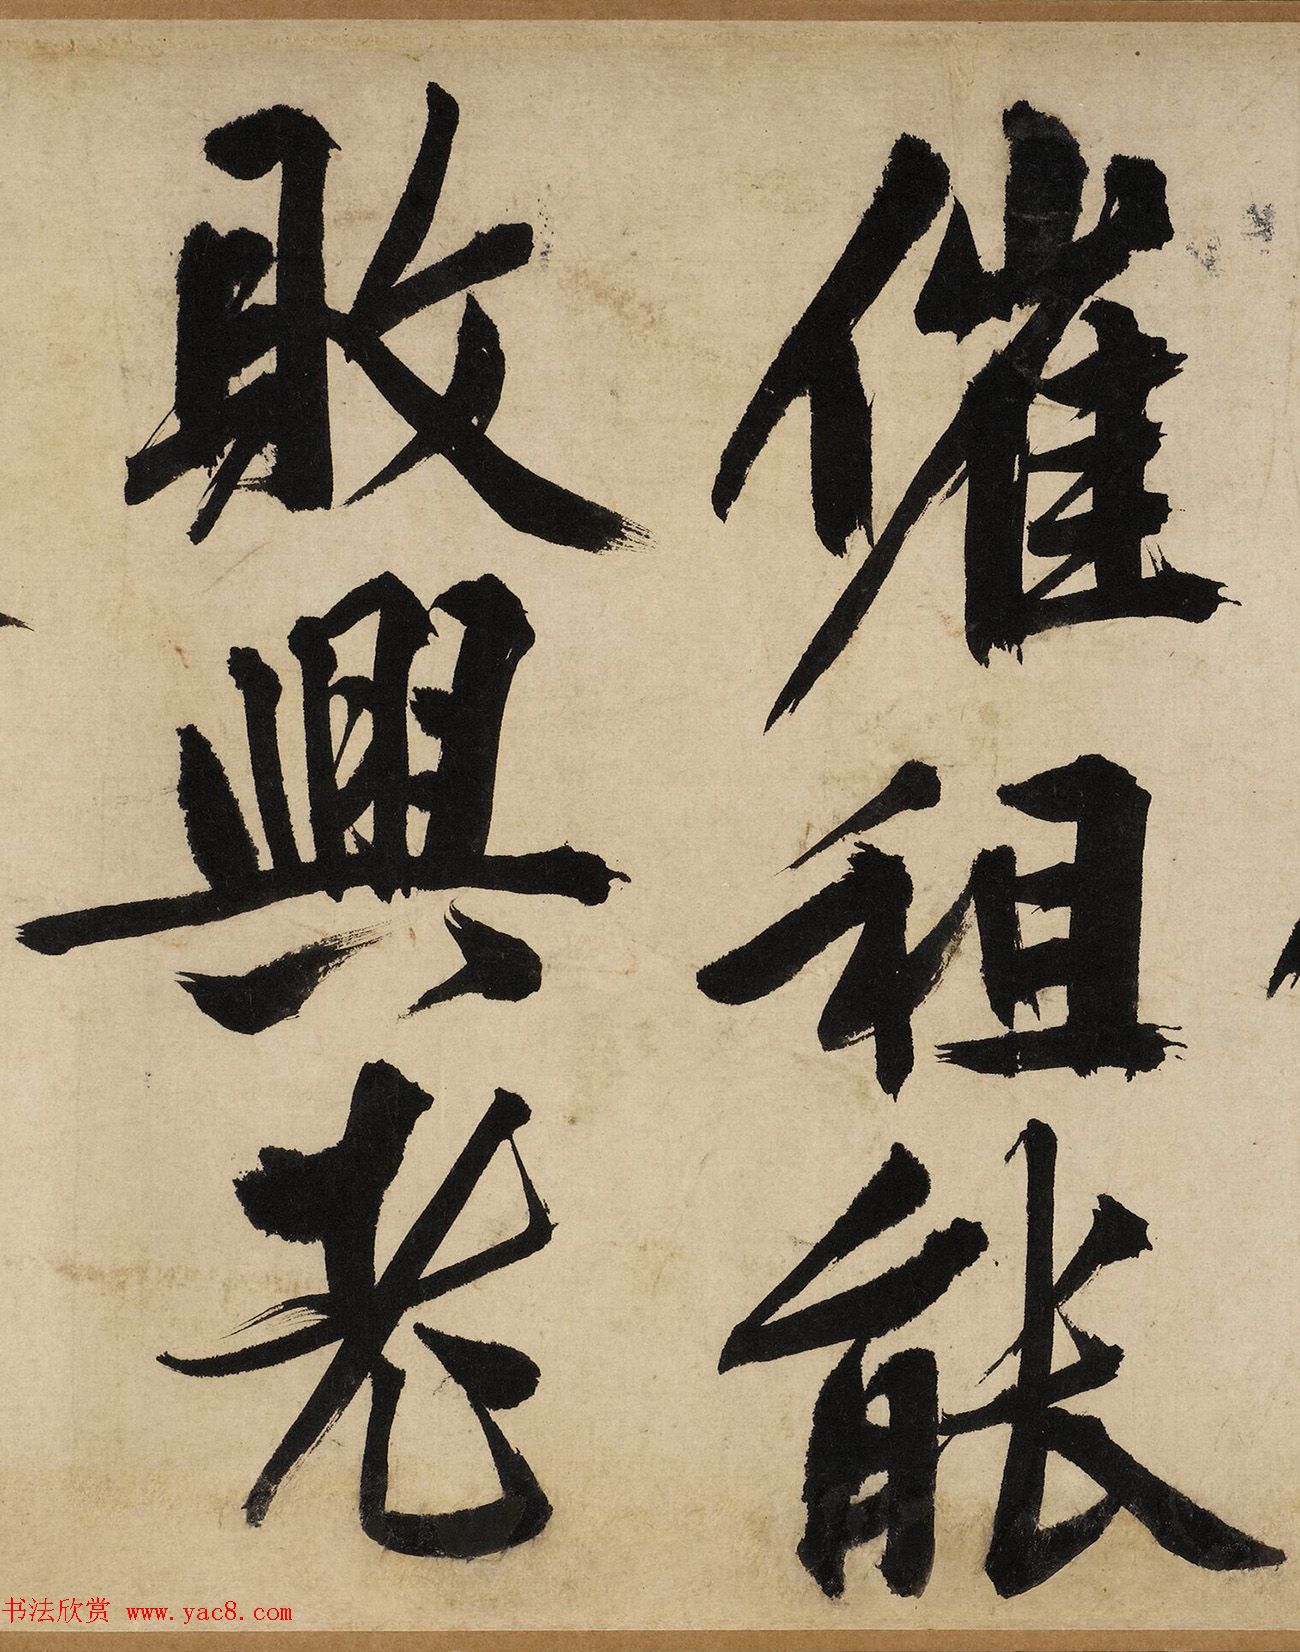 催租能
敗興老
书法欣赏 www.yac8.com